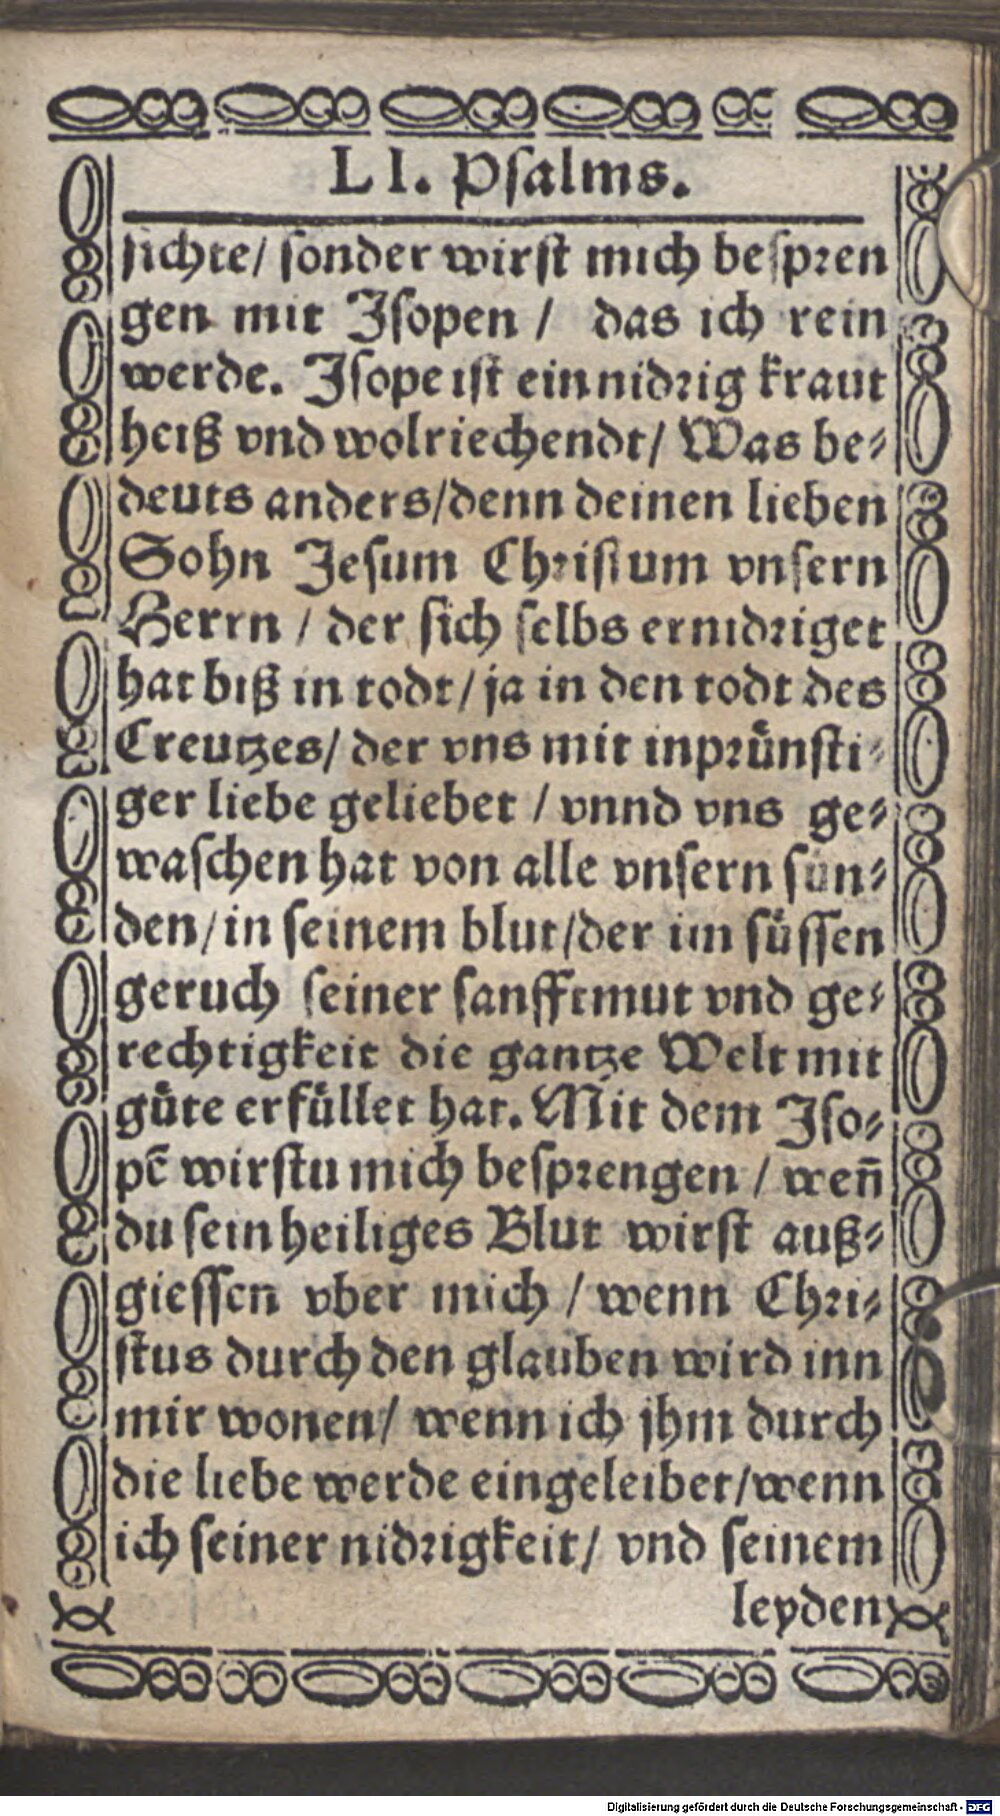 LI. Psalms.
sichte/ sonder wirst mich bespren
gen mit Isopen / das ich rein
werde. Isope ist ein nidrig kraut
heiß vnd wolriechendt/ Was be⸗
deuts anders/denn deinen lieben
Sohn Jesum Christum vnsern
Herrn / der sich selbs ernidriget
hat biß in todt/ ja in den todt des
Creutzes/ der vns mit inprůnsti⸗
ger liebe geliebet / vnnd vns ge⸗
waschen hat von alle vnsern sün⸗
den/in seinem blut/der im sůssen
geruch seiner sanfftmut vnd ge⸗
rechtigkeit die gantze Welt mit
gůte erfůllet hat. Mit dem Iso⸗
pē wirstu mich besprengen / weñ
du sein heiliges Blut wirst auß⸗
giessen vber mich / wenn Chri⸗
stus durch den glauben wird inn
mir wonen/ wenn ich jhm durch
die liebe werde eingeleibet/wenn
ich seiner nidrigkeit/ vnd seinem
leyden
Digitalisierung gefördert durch die Deutsche Forschungsgemeinschaft - DFG